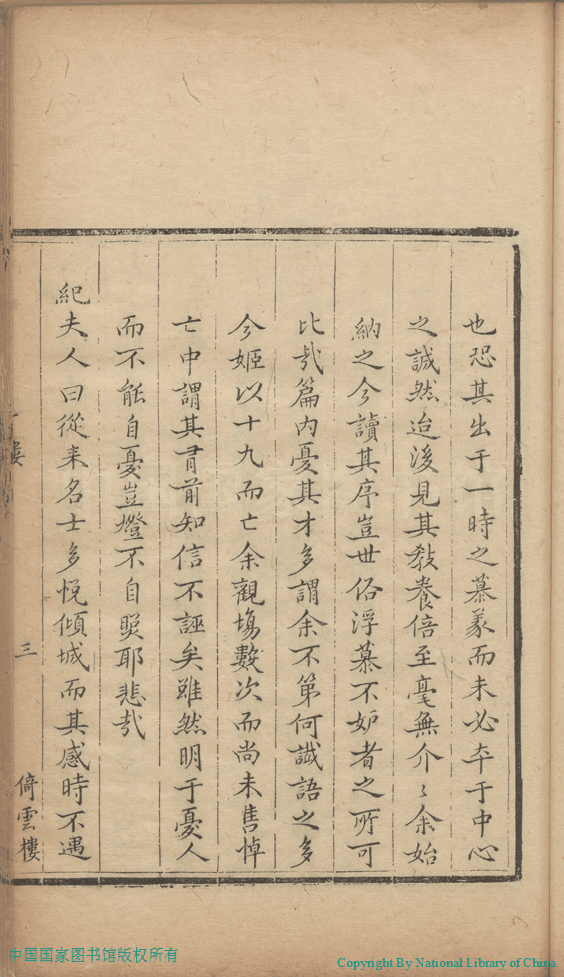 也恐其出于一時之慕義而未必本于中心
之誠然迨後見其敎養倍至毫無介〻余始
納之今讀其序豈世俗浮慕不妒者之所可
比哉篇內憂其才多謂余不第何讖語之多
今姬以十九而亡余觀塲數次而尚未售悼
亡中謂其有前知信不誣矣雖然明于憂人
而不能自憂豈燈不自照耶悲哉
紀夫人曰從来名士多悅傾城而其感時不遇
三
倚雲樓
中国国家图书馆版权所有
Copyright By National Library of China